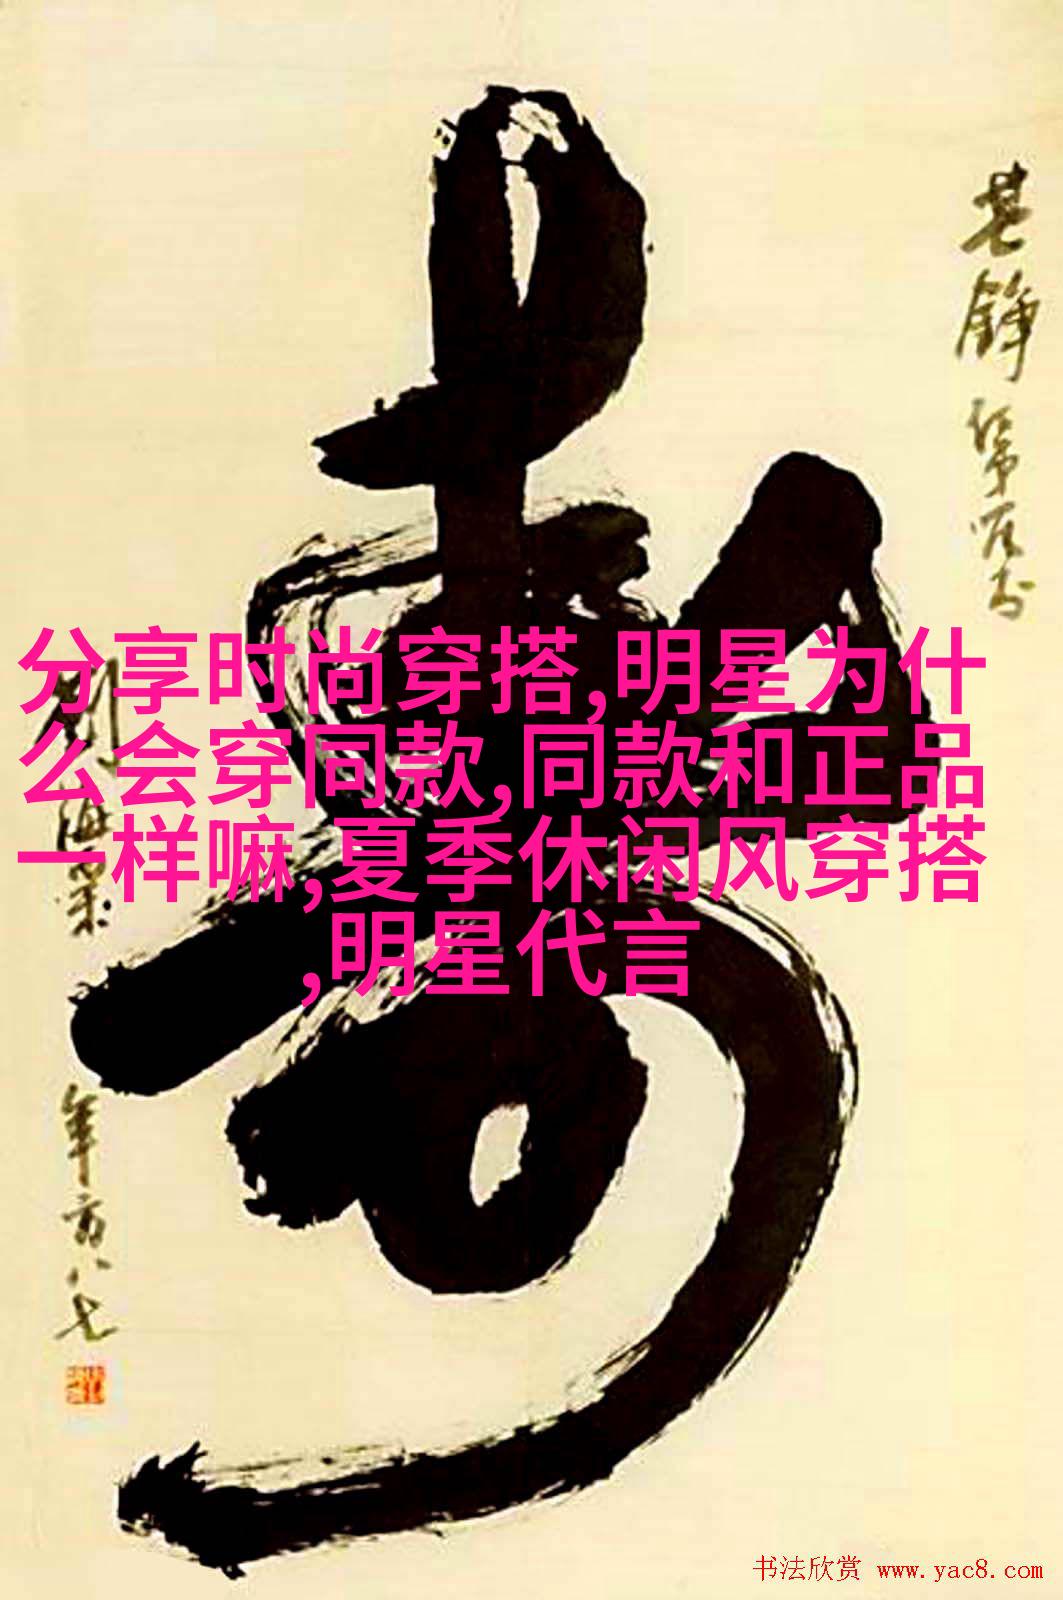 分享时尚穿搭,明星为什
么会穿同款,同款和正品
一样嘛,夏季休闲风穿搭
,明星代言
刘海粟
年方八七
书法欣赏 www.yac8.com